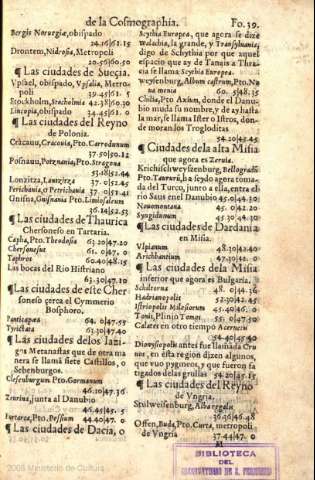 de la Cosmographia. Fo.39.
Bergis Noruegiæ, obispado
24.16 / 61.15
Drontem, Nidrosia, Metropoli
20.56 / 60.50
¶ Las ciudades de Suecia.
Vpsael, obispado, Vpsalia, Metro
poli 39.45 / 61. 5
Stockholm, Stocholmia 42.38 / 60.30
Lincopia, obispado 34.45 / 61. 0
¶ Las ciudades del Reyno
de Polonia.
Cracauu, Cracouia, Pto. Carrodunum
37.50 / 50.12
Posnauu, Posnania, Pto. Stragona
53.18 / 52.44
Lonzitza, Lantzica 37. 0 / 52.45
Petrichania, o Petrichania 37. 0 / 51.41
Gnisna, Gnisnania Pto. Limiosaleum
36.14 / 52.53
¶ Las ciudades de Thaurica
Chersoneso en Tartaria.
Capha, Pto. Theodosia 63.20 / 47.10
Chersonesus 61. 0 / 47. 0
Taphros 60.40 / 48.15
Las bocas del Rio Histriano
63.30 / 47.10
¶ Las ciudades de este Cher
soneso cerca el Cymmerio
Bosphoro.
Panticapæa 64. 0 / 47.55
Tyrictata 63.30 / 47.40
¶ Las ciudades delos Iazi-
gos Metanastas que de otra ma
nera se llama siete Castillos, o
Sebenburgos.
Clesenburgum Pto. Germanum
46.10 / 47.36
Zeurius, junto al Danubio
46.45 / 45. 5
Pessium 44.40 / 47. 0
¶ Las ciudades de Dacia, o
Scythia Europea, que agora se dize
Walachia, la grande, y Transyluania;
digo de Scythia por que aquel
espacio que ay de Tanais a Thra-
cia se llama Scythia Europea.
Album castrum, Pto. Na
menia 60. 5 / 48.35
Chilia, Pto Axium, donde el Danu-
bio muda su nombre, y de ay hasta
la mar, se llama Ister o Istros, don-
de moran los Trogloditas
54.20 / 45.45
¶ Ciudades dela alta Misia
que agora es Zeruia.
Krichischvveyssenburg, Bellogradū
Pto. Taururū, ha seydo agora toma-
da del Turco, junto a ella, entra el
rio Saus enel Danubio 45. 0 / 44.30
Nouomontana 45. 0 / 44. 0
Syngidunum 45.30 / 44.30
¶ Las ciudades de Dardania
en Misia.
Vlpianum 48.30 / 42.40
Arichbantium 47.30 / 42. 0
¶ Las ciudades dela Misia
inferior que agora es Bulgaria.
Schilturna 48. 0 / 44.36
Hadrianopolis 52.30 / 42.45
Istriopolis Milesiorum 55.40 / 46. 0
Tonis, Plinio Tomos 55. 0 / 45.50
Calates en otro tiempo Aceruetis
54.40 / 45.40
Dionysopolis antes fue llamada Cru
nos, en esta región dizen algunos,
que vuo pygmeos, y que fueron fa
tigados de las grullas 54.20 / 45.15
¶ Las ciudades del Reyno
de Vngria.
Stulweisenburg, Alba regalis
36.46 / 46.48
Offen, Buda, Pto. Curta, metropoli
de Vngria 37.44 / 47. 0
BIBLIOTECA
DEL
OBSERVATORIO DE S. FERNANDO
2008 Ministerio de Cultura